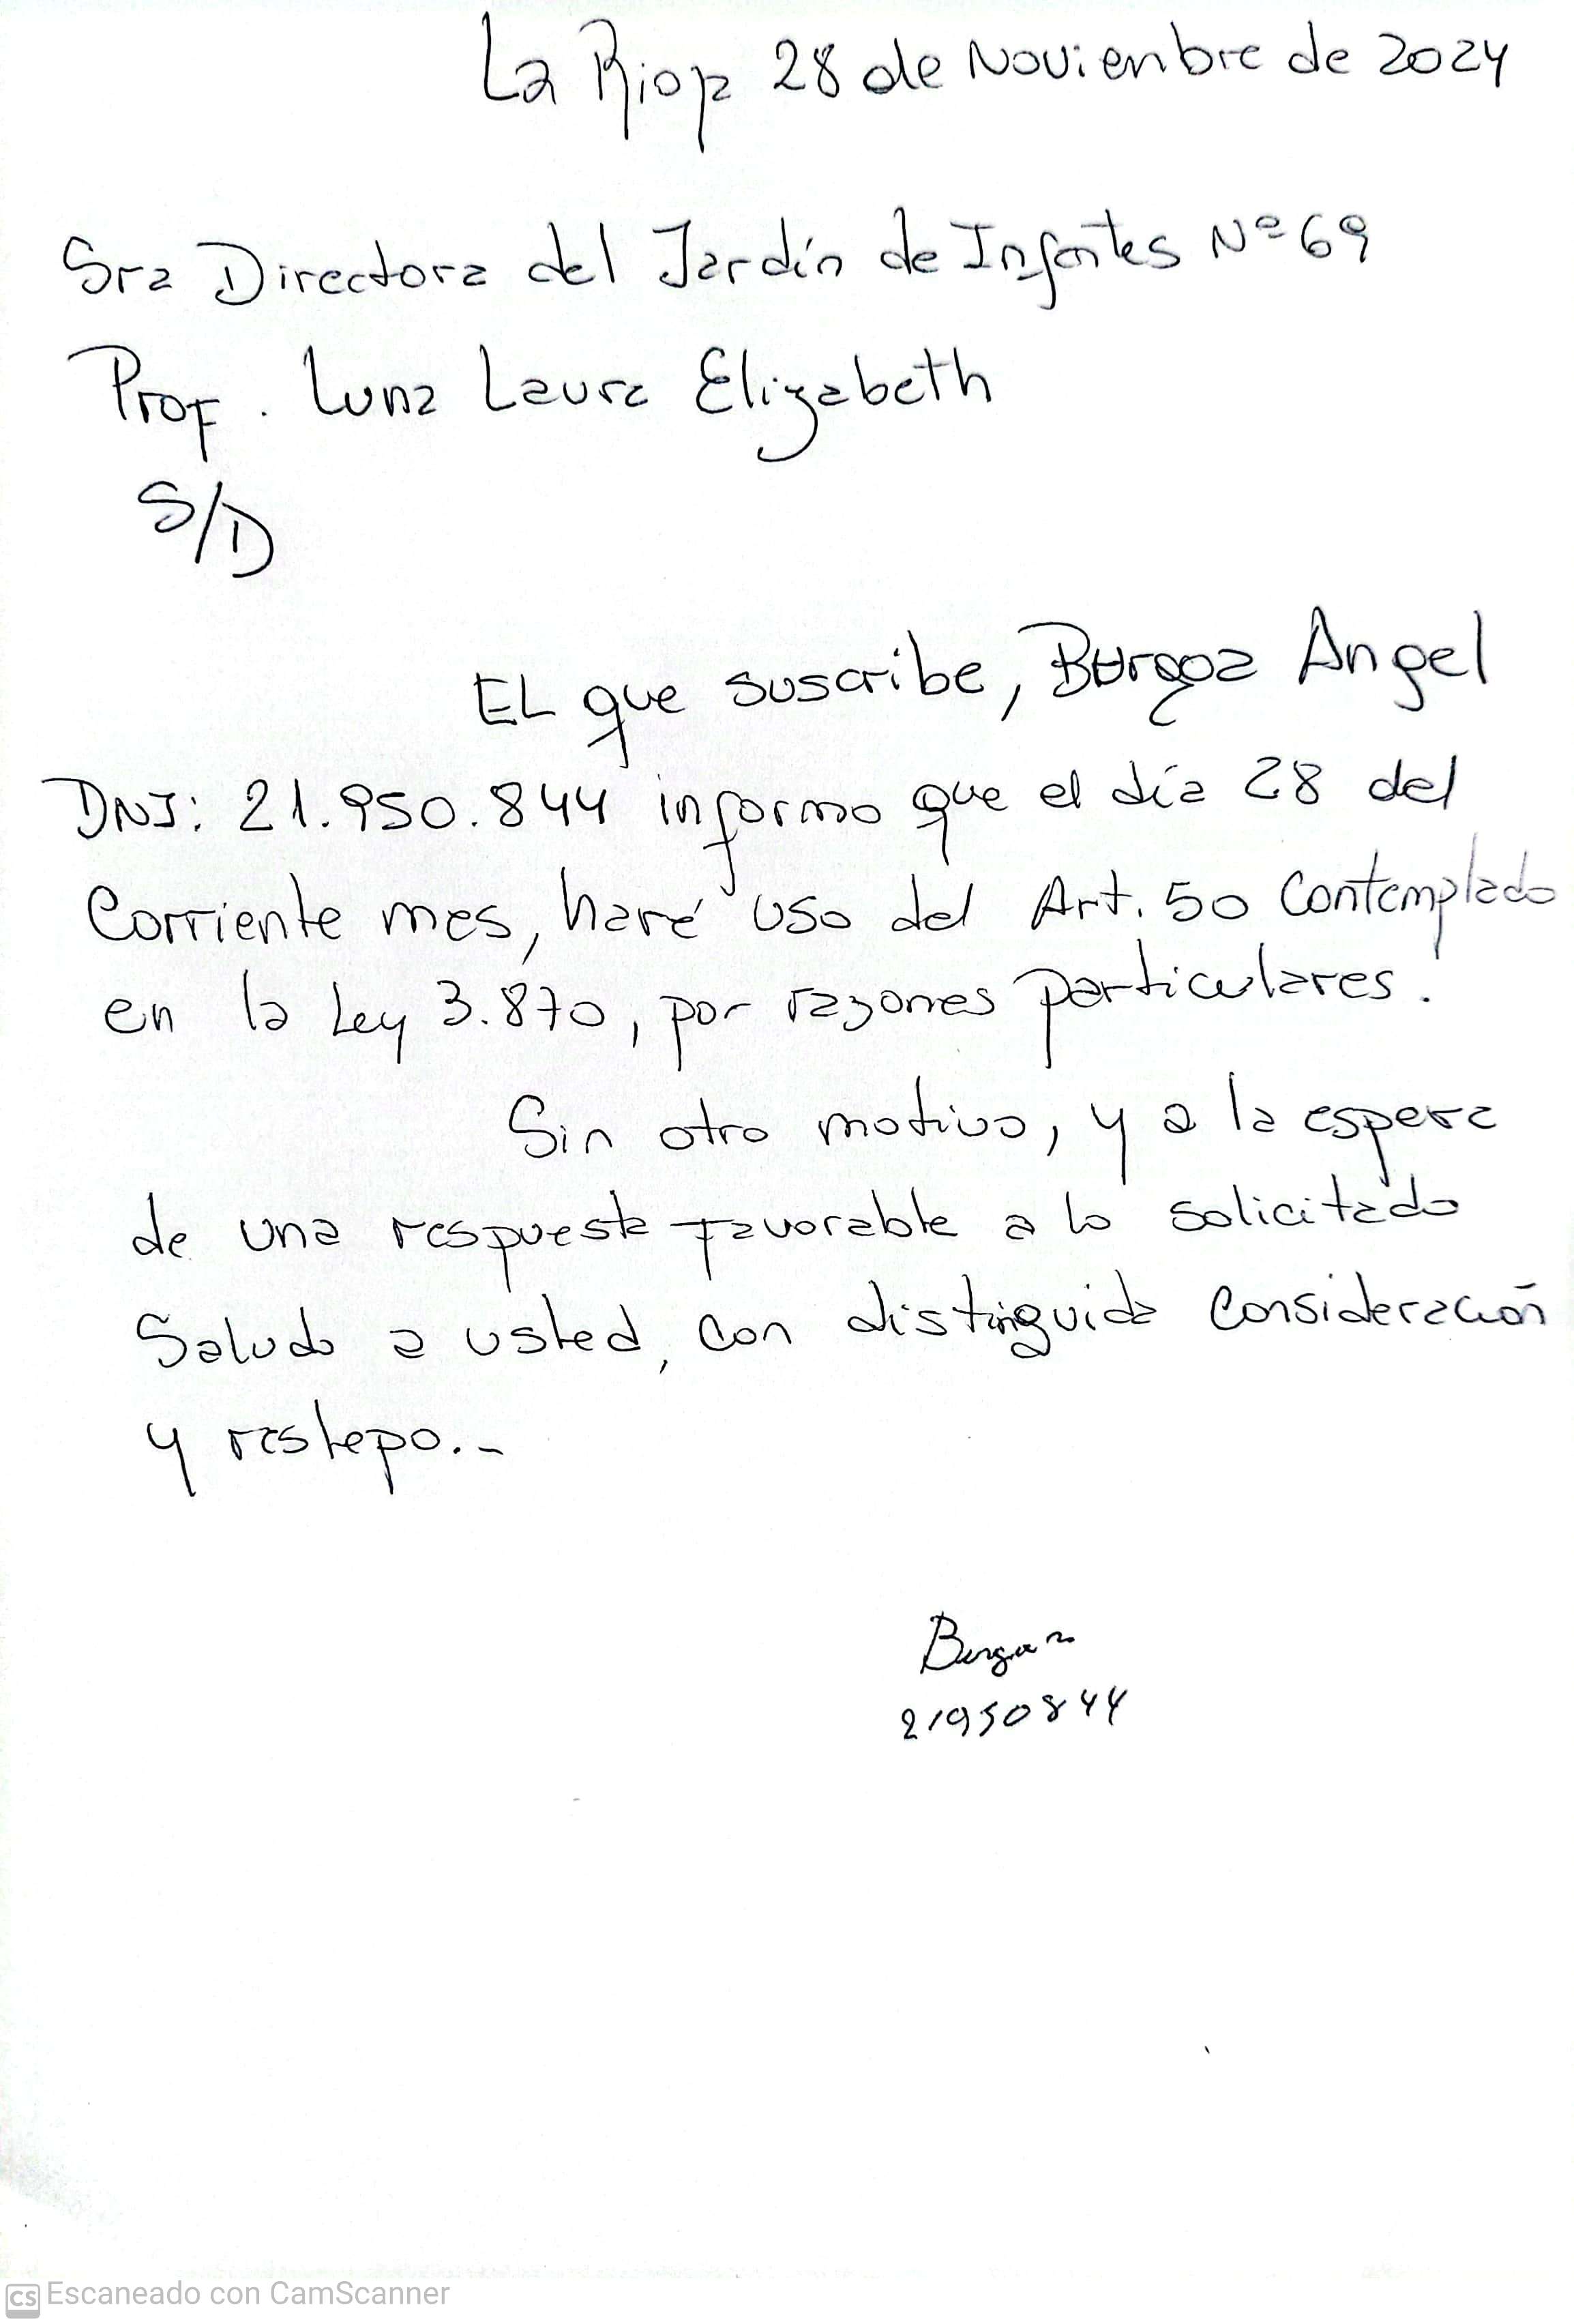 La Rioja 28 de Noviembre de 2024
Sra Directora del Jardín de Infantes Nº 69
Prof. Luna Laura Elizabeth
S/D
EL que suscribe, Burgoa Angel
DNI: 21.950.844 informo que el día 28 del
Corriente mes, haré uso del Art. 50 Contemplado
en la Ley 3.870, por razones particulares.
Sin otro motivo, y a la espera
de una respuesta favorable a lo solicitado
Saludo a usted, con distinguida consideración
y restepo.-
Burgoa
21950844
CS Escaneado con CamScanner